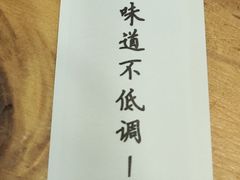 味道不低调